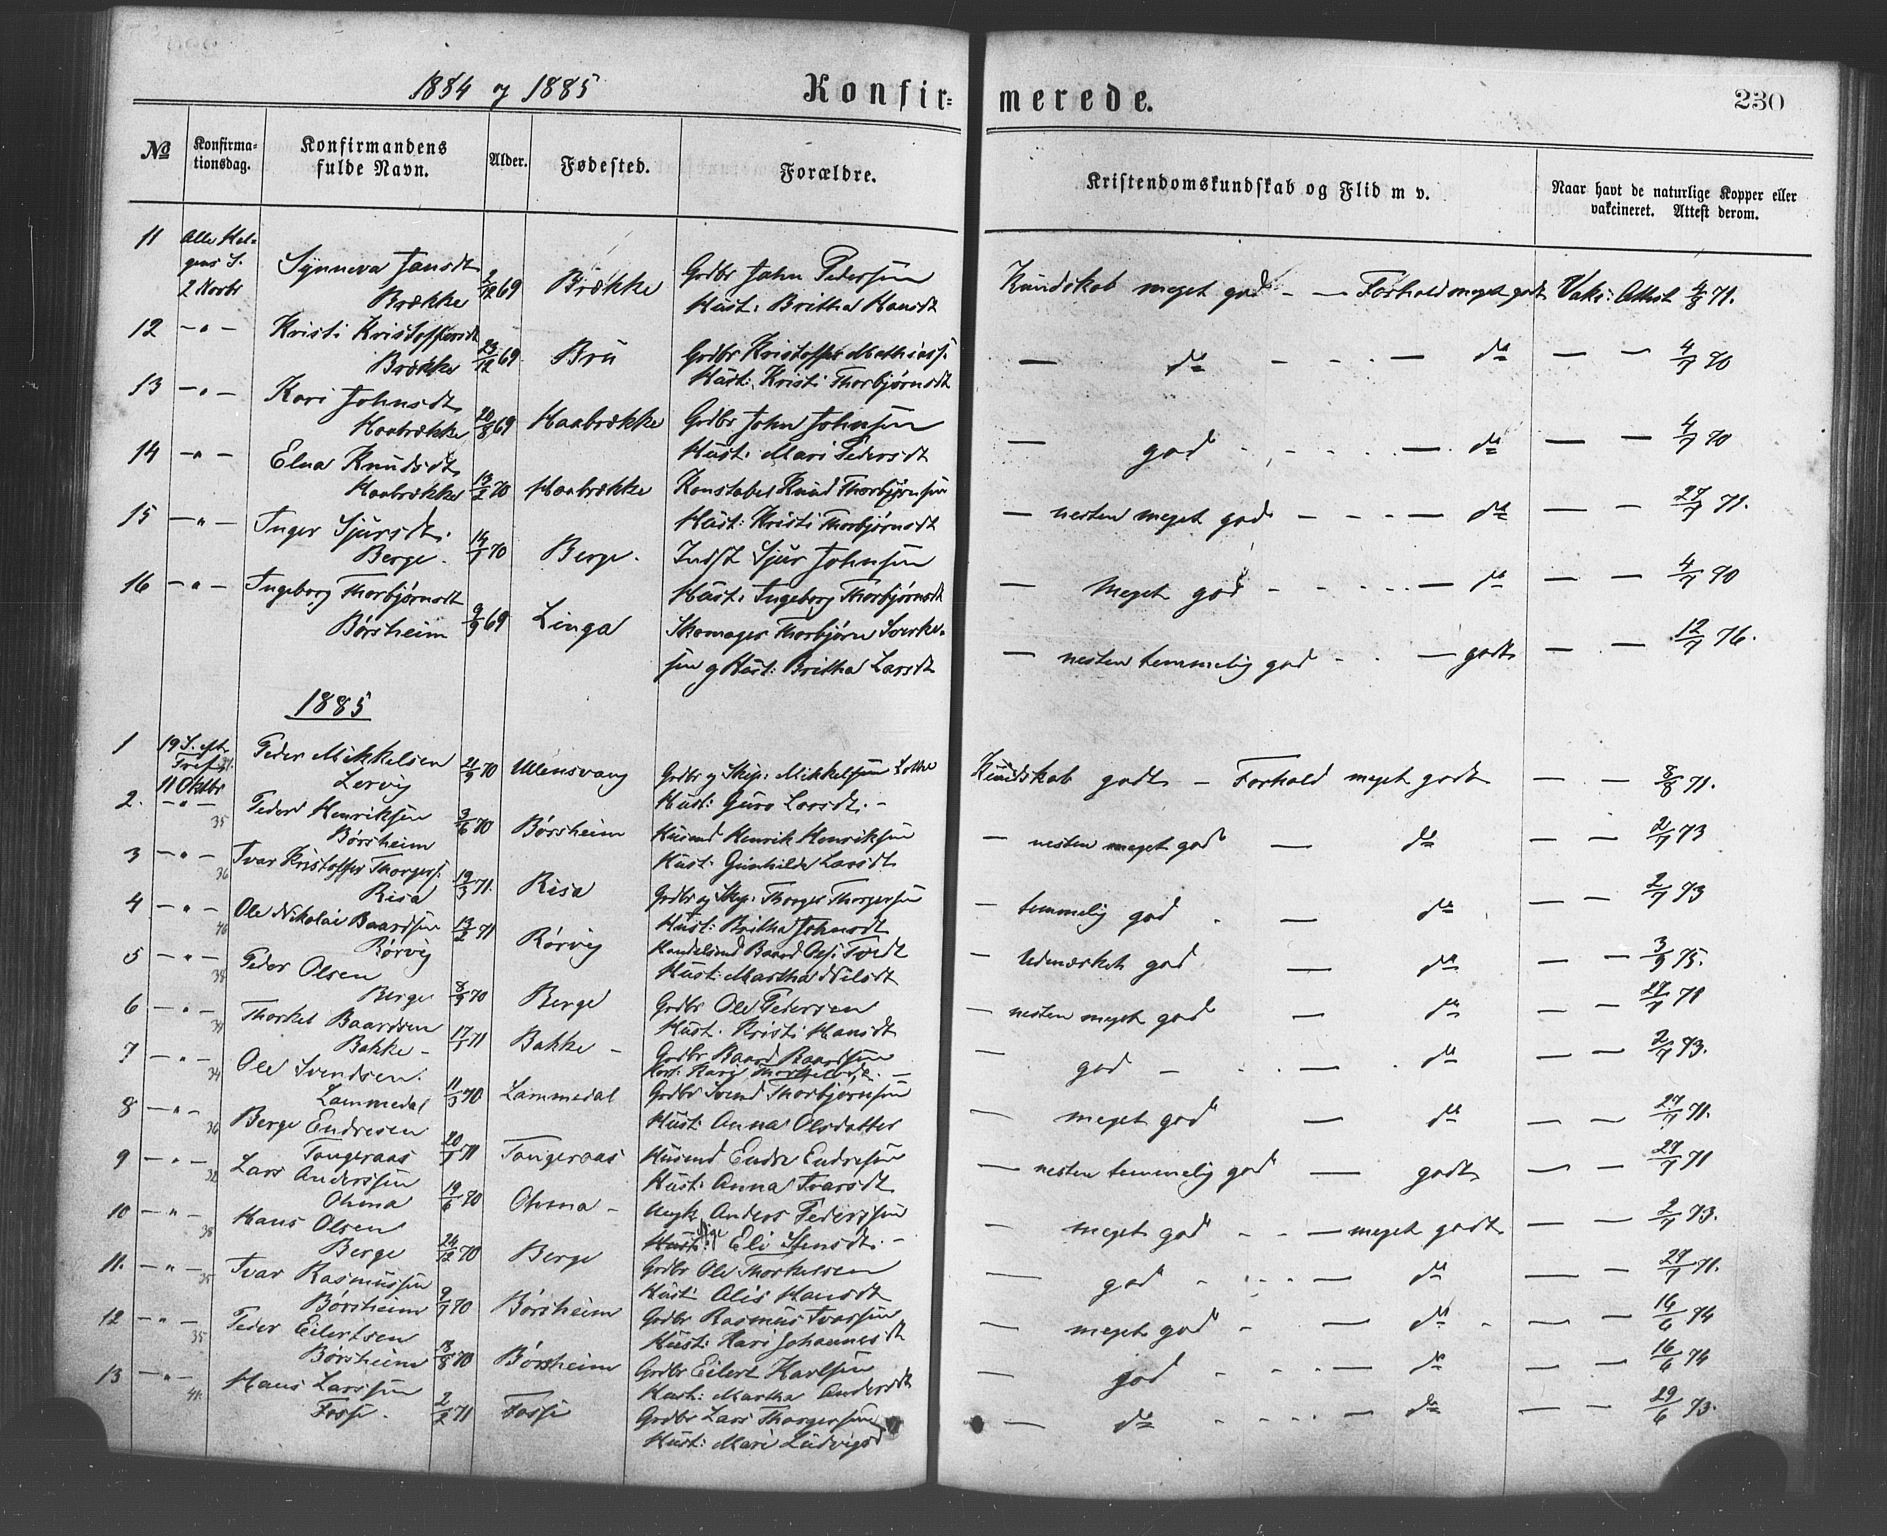 1884 og 1885
Konfir=
merede.
230
№
Konfirma-
tionsdag.
Konfirmandens
fulde Navn.
Alder.
Fødested.
Forældre.
Kristendomskundskab og Flid m v.
Naar havt de naturlige Kopper eller
vakcineret. Attest derom.
11 Alle Hel-
gens S.
2 Novbr
Synneva Jansdt
Brække
2/12 69 Brække
Grdbr Jahn Pedersen
Hust: Britha Hansdt
Kundskab meget god - — Forhold meget godt Vakc: Attest 4/8 71.
12 — " — Kristi Kristoffersdt
Brække
23/12 69 Bru
Grdbr Kristoffer Mathiass.
Hust: Kristi Thorbjørnsdt
— do - - — do — — 4/7 70
13 — " — Kari Johnsdt
Haabrække
20/8 69 Haabrække
Grdbr John Johnsen
Hust: Mari Pedersdt
— god - - - - — do — — 4/7 70
14 — " — Elna Knudsdt
Haabrække
13/2 70 Haabrække
Konstabel Knud Thorbjørnsen
Hust: Kristi Thorbjørnsdt
— nesten meget god - - - — do — — 27/7 71.
15 — " — Inger Sjursdt.
Berge.
14/7 70 Berge.
Indst Sjur Johnsen
Hust: Ingeborg Thorbjørnsdt
— Meget god - - - - — do — — 4/7 70
16 — " — Ingeborg Thorbjørnsdt
Børsheim
9/9 69 Linga
Skomager Thorbjørn Sverke-
sen og Hust: Britha Larsdt
— nesten temmelig god - - — godt — — 12/7 76.
1885
1 19 S. eftr
Tref.
11 Oktbr
Peder Mikkelsen
Lervig
21/9 70 Ullensvang
Grdbr og Skip: Mikkelsen Lothe
Hust: Guro Larsdt. -
Kundskab godt - Forhold meget godt — — 8/8 71.
2. — " — 35 Peder Henriksen
Børsheim
3/6 70 Børsheim
Husmd Henrik Henriksen
Hust: Gunhilde Larsdt
— nesten meget god — do — — 2/7 73
3 — " — 36 Ivar Kristoffer Thorgers.
Risa
19/3 71. Risa
Grdbr og Skip: Thorger Thorgersen
Hust: Britha Johnsdt
— temmelig god - — do — — 2/7 73
4 — " — 40 Ole Nikolai Baardsen
Rørvig
13/2 71 Rørvig
Handelsmd Baard Tvedt
Hust: Martha Nilsdt
— Udmærket god — do — — 3/9 75.
5 — " — 38 Peder Olsen
Berge
8/9 70 Berge
Grdbr Ole Pedersen
Hust. Kristi Hansdt
— nesten meget god — do — 27/7 78
6 — " — Thorkel Baardsen
Bakke -
17/1 71 Bakke -
Grdbr Baard Baardsen
Thorkelsdt. -
— god - - - do — — 2/7 73.
7 — " — 34 Ole Svendsen.
Lammedal
11/3 70 Lammedal
Grdbr Svend Thorbjørnsen
Hust: Anna Olsdatter
— meget god — do — — 27/7 71.
8 — " — 36 Berge Endresen
Tangeraas
20/1 71 Tangeraas
Husmd Endre Endresen
Hust: Anna Ivarsdt
— nesten temmelig god — godt — — 27/7 71
9 — " — 32 Lars Anderssen
Ohma
19/6 70 Ohma -
Anders Pederssen
Eli Stensdt. -
— meget god - - — meget godt — — 2/7 73.
10 — " — 38 Hans Olsen
Berge
24/12 70 Berge
Grdbr Ole Thorkelsen
Hust: Alis Hansdt
— god - - - — do — — 27/7 71.
11. — " — 35 Ivar Rasmussen
Børsheim
9/7 70 Børsheim
Grdbr Rasmus Ivarsen
Hust: Kari Johannesdt
— meget god - - — do - — — 16/6 74
12 — " — 35 Peder Eilertsen
Børsheim
18/8 70 Børsheim
Grdbr Eilert Karlsen
Hust: Martha Andersdt
— god - - — do — — 16/6 74
13 — " — 41. Hans Larssen
Fosse.
2/2 71 Fosse
Grdbr Lars Thorgersen
Hust: Mari Ludvigsd
— do - - - — do — — 29/6 73.